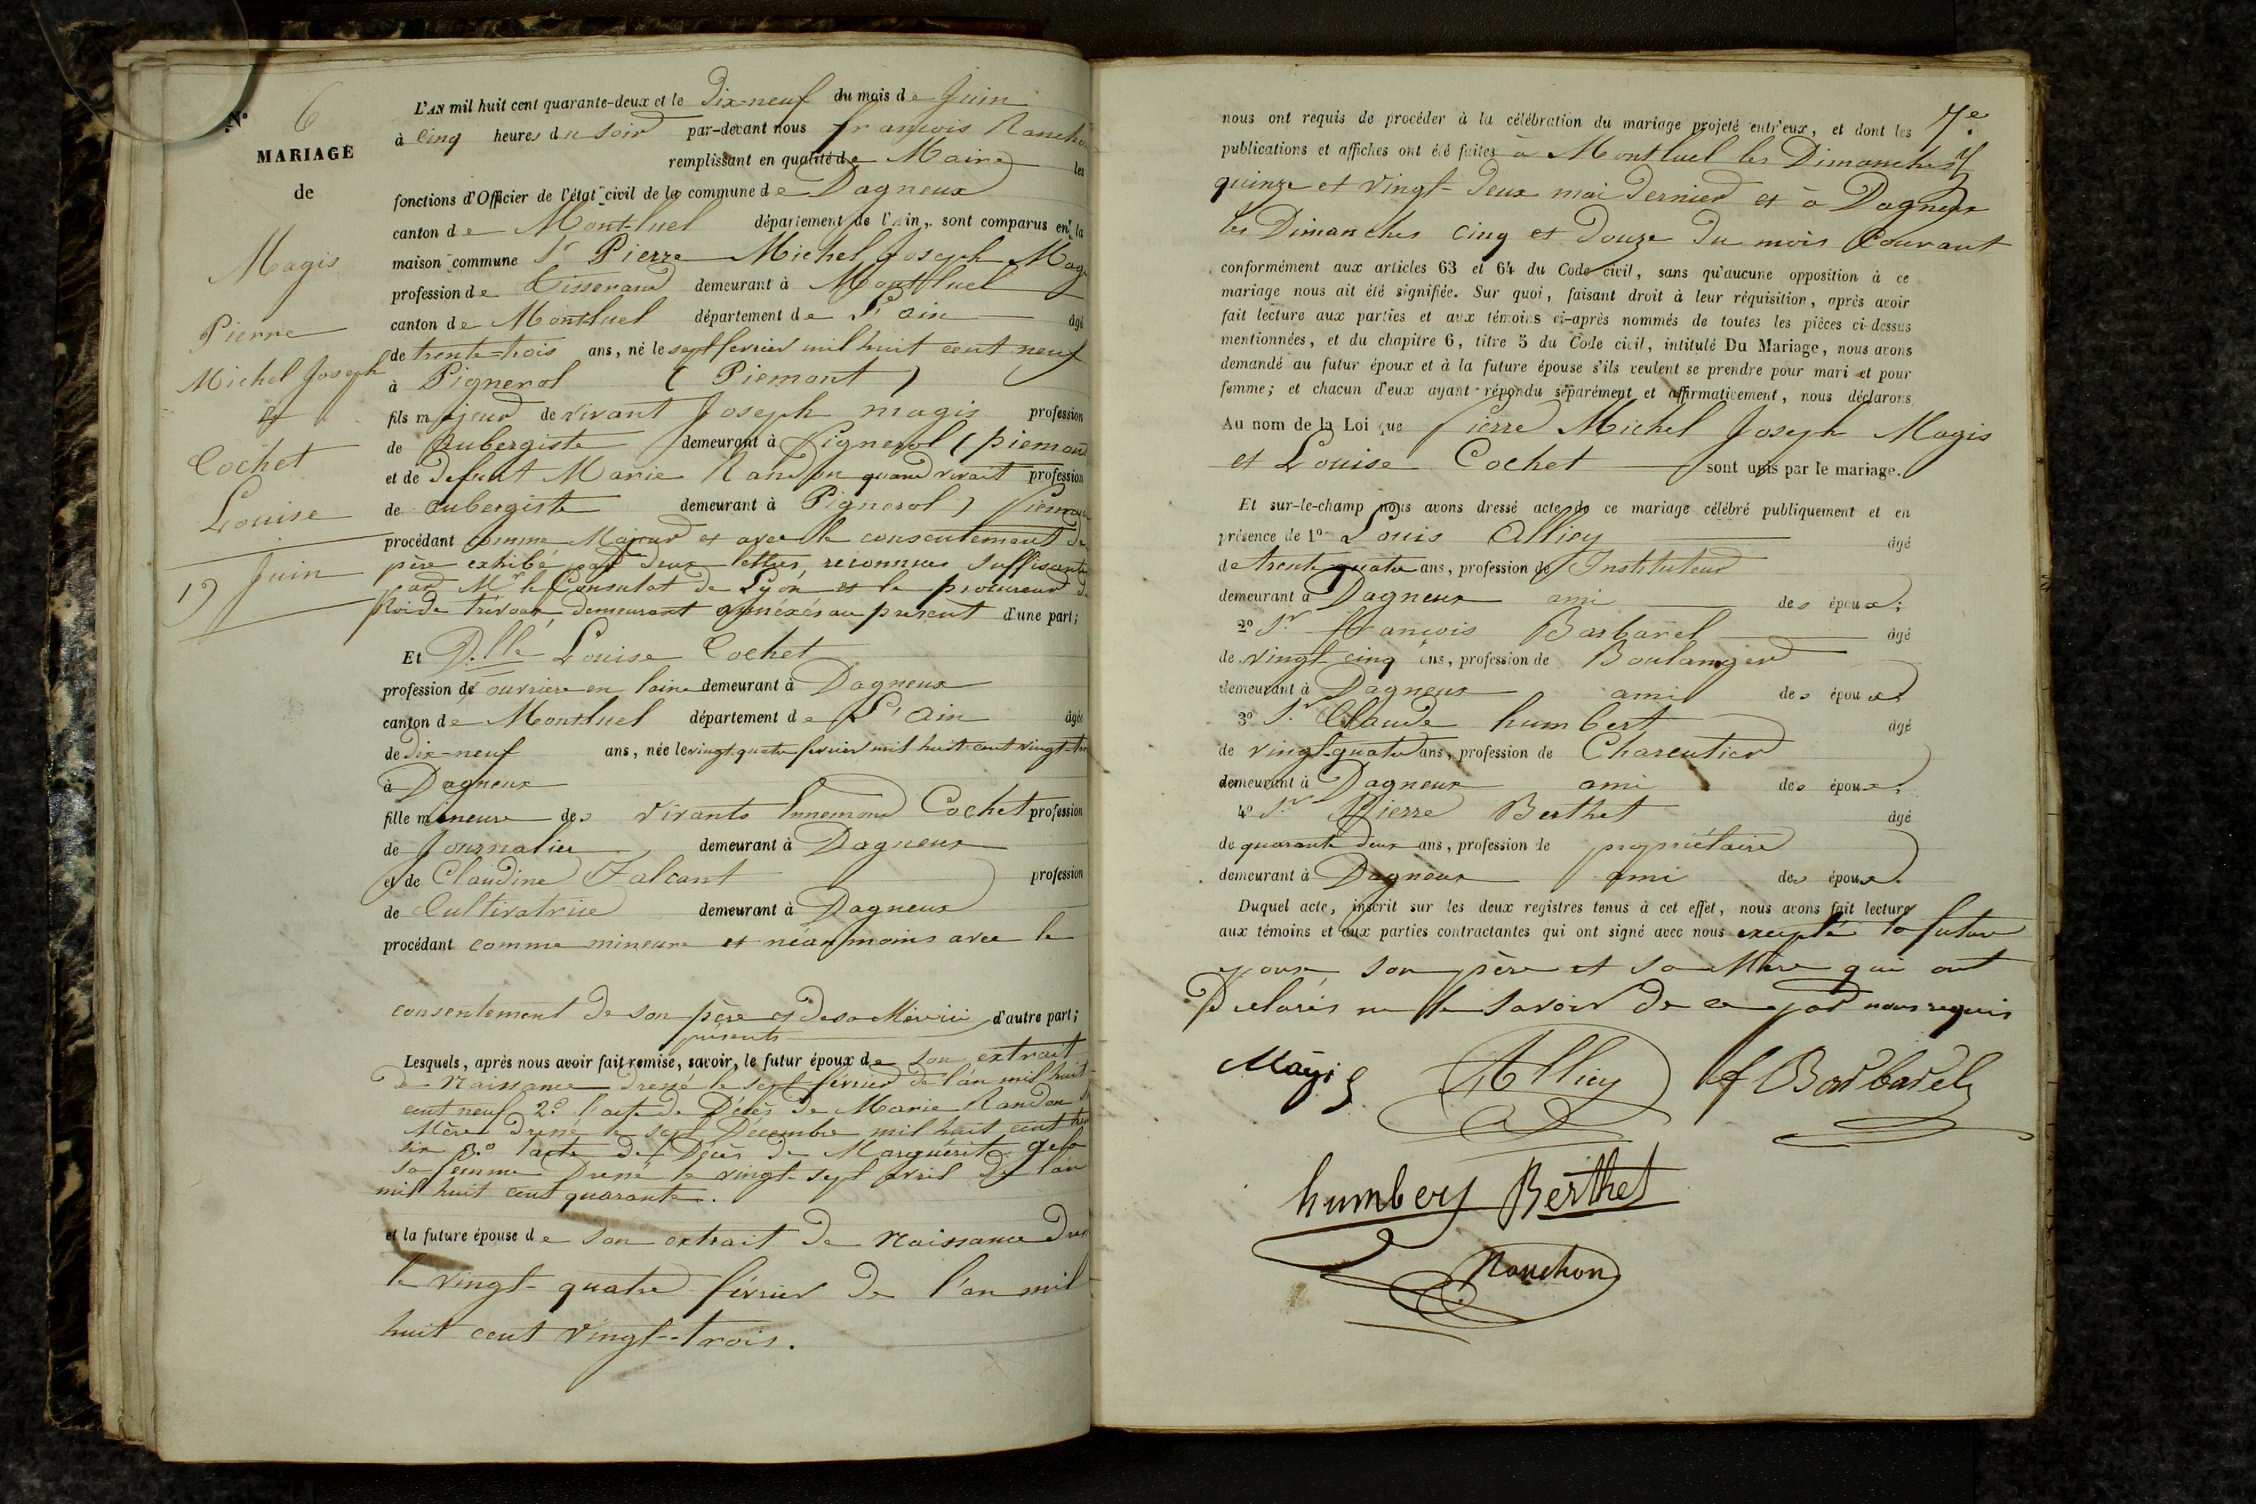 N° 6
MARIAGE
de
Magis
Pierre
Michel Joseph
et
Cochet
Louise
19 Juin
L'AN mil huit cent quarante-deux et le Dix-neuf du mois de Juin
à Cinq heures du soir par-devant nous françois
remplissant en qualité de Maire les
fonctions d'Officier de l'état civil de la commune de Dagneux
canton de Montluel département de l'Ain, sont comparus en la
maison commune Sr Pierre Michel Joseph Mag
profession de Tisserand demeurant à Montluel
canton de Montluel département de L'ain âgé
de trente-trois ans, né le sept fevrier mil huit cent neuf
à Pignerol (Piemont)
fils majeur de vivant Joseph magis profession
de aubergiste demeurant à Pignerol (piemon
et de defunt Marie Randon quand vivait profession
de aubergiste demeurant à Pignerol) Piemon
procédant comme Majeur et avec le consentement de
père exhibé par deux lettres, reconnues suffisante
par Mr le Consulat de Lyon et le procureur d
Roi de trévoux, demeurant annexés au present d'une part;
Et Dlle Louise Cochet
profession de ouvriere en laine demeurant à Dagneux
canton de Montluel département de L'ain âgée
de Dix-neuf ans, née le vingt quatre fevrier mil huit cent vingt-tro
à Dagneux
fille mineure des vivants Ennemond Cochet profession
de Journalier demeurant à Dagneux
et de Claudine Falcont profession
de Cultivatrice demeurant à Dagneux
procédant comme mineure et néanmoins avec le
consentement de son père et de sa Mère ici d'autre part;
présents
Lesquels, après nous avoir fait remise, savoir, le futur époux de son extrait
de Naissance dressé le sept février de l'an mil huit
cent neuf 2° l'acte de Décès de Marie Randon
Mère dressé le sept Décembre mil huit cent
six 3° l'acte de Décès de Marguerite
sa femme Dressé le vingt-sept avril de l'an
mil huit cent quarante.
et la future épouse de son extrait de Naissance dres
le vingt-quatre février de l'an mil
huit cent vingt-trois.
7e
nous ont requis de procéder à la célébration du mariage projeté entr'eux, et dont les
publications et affiches ont été faites à Montluel les Dimanches
quinze et vingt-deux mai dernier et à Dagneux
les Dimanches cinq et douze du mois Courant
conformément aux articles 63 et 64 du Code civil, sans qu'aucune opposition à ce
mariage nous ait été signifiée. Sur quoi, faisant droit à leur réquisition, après avoir
fait lecture aux parties et aux témoins ci-après nommés de toutes les pièces ci-dessus
mentionnées, et du chapitre 6, titre 5 du Code civil, intitulé Du Mariage, nous avons
demandé au futur époux et à la future épouse s'ils veulent se prendre pour mari et pour
femme; et chacun d'eux ayant répondu séparément et affirmativement, nous déclarons
Au nom de la Loi que Pierre Michel Joseph Magis
et Louise Cochet sont unis par le mariage.
Et sur-le-champ nous avons dressé acte de ce mariage célébré publiquement et en
présence de 1° Louis Alliey âgé
de trente quatre ans, profession de Instituteur
demeurant à Dagneux ami des époux;
2° Sr françois Barbarel âgé
de vingt-cinq ans, profession de Boulanger
demeurant à Dagneux ami des époux;
3° Sr Claude humbert âgé
de vingt-quatre ans, profession de Charcutier
demeurant à Dagneux ami des époux;
4° Sr Pierre Berthet âgé
de quarante deux ans, profession de propriétaire
demeurant à Dagneux ami des époux.
Duquel acte, inscrit sur les deux registres tenus à cet effet, nous avons fait lecture
aux témoins et aux parties contractantes qui ont signé avec nous excepté la future
epouse son père et sa Mère qui ont
Declarés ne le savoir de ce par nous requis
Magis Alliey f Barbarel
humbert Berthet